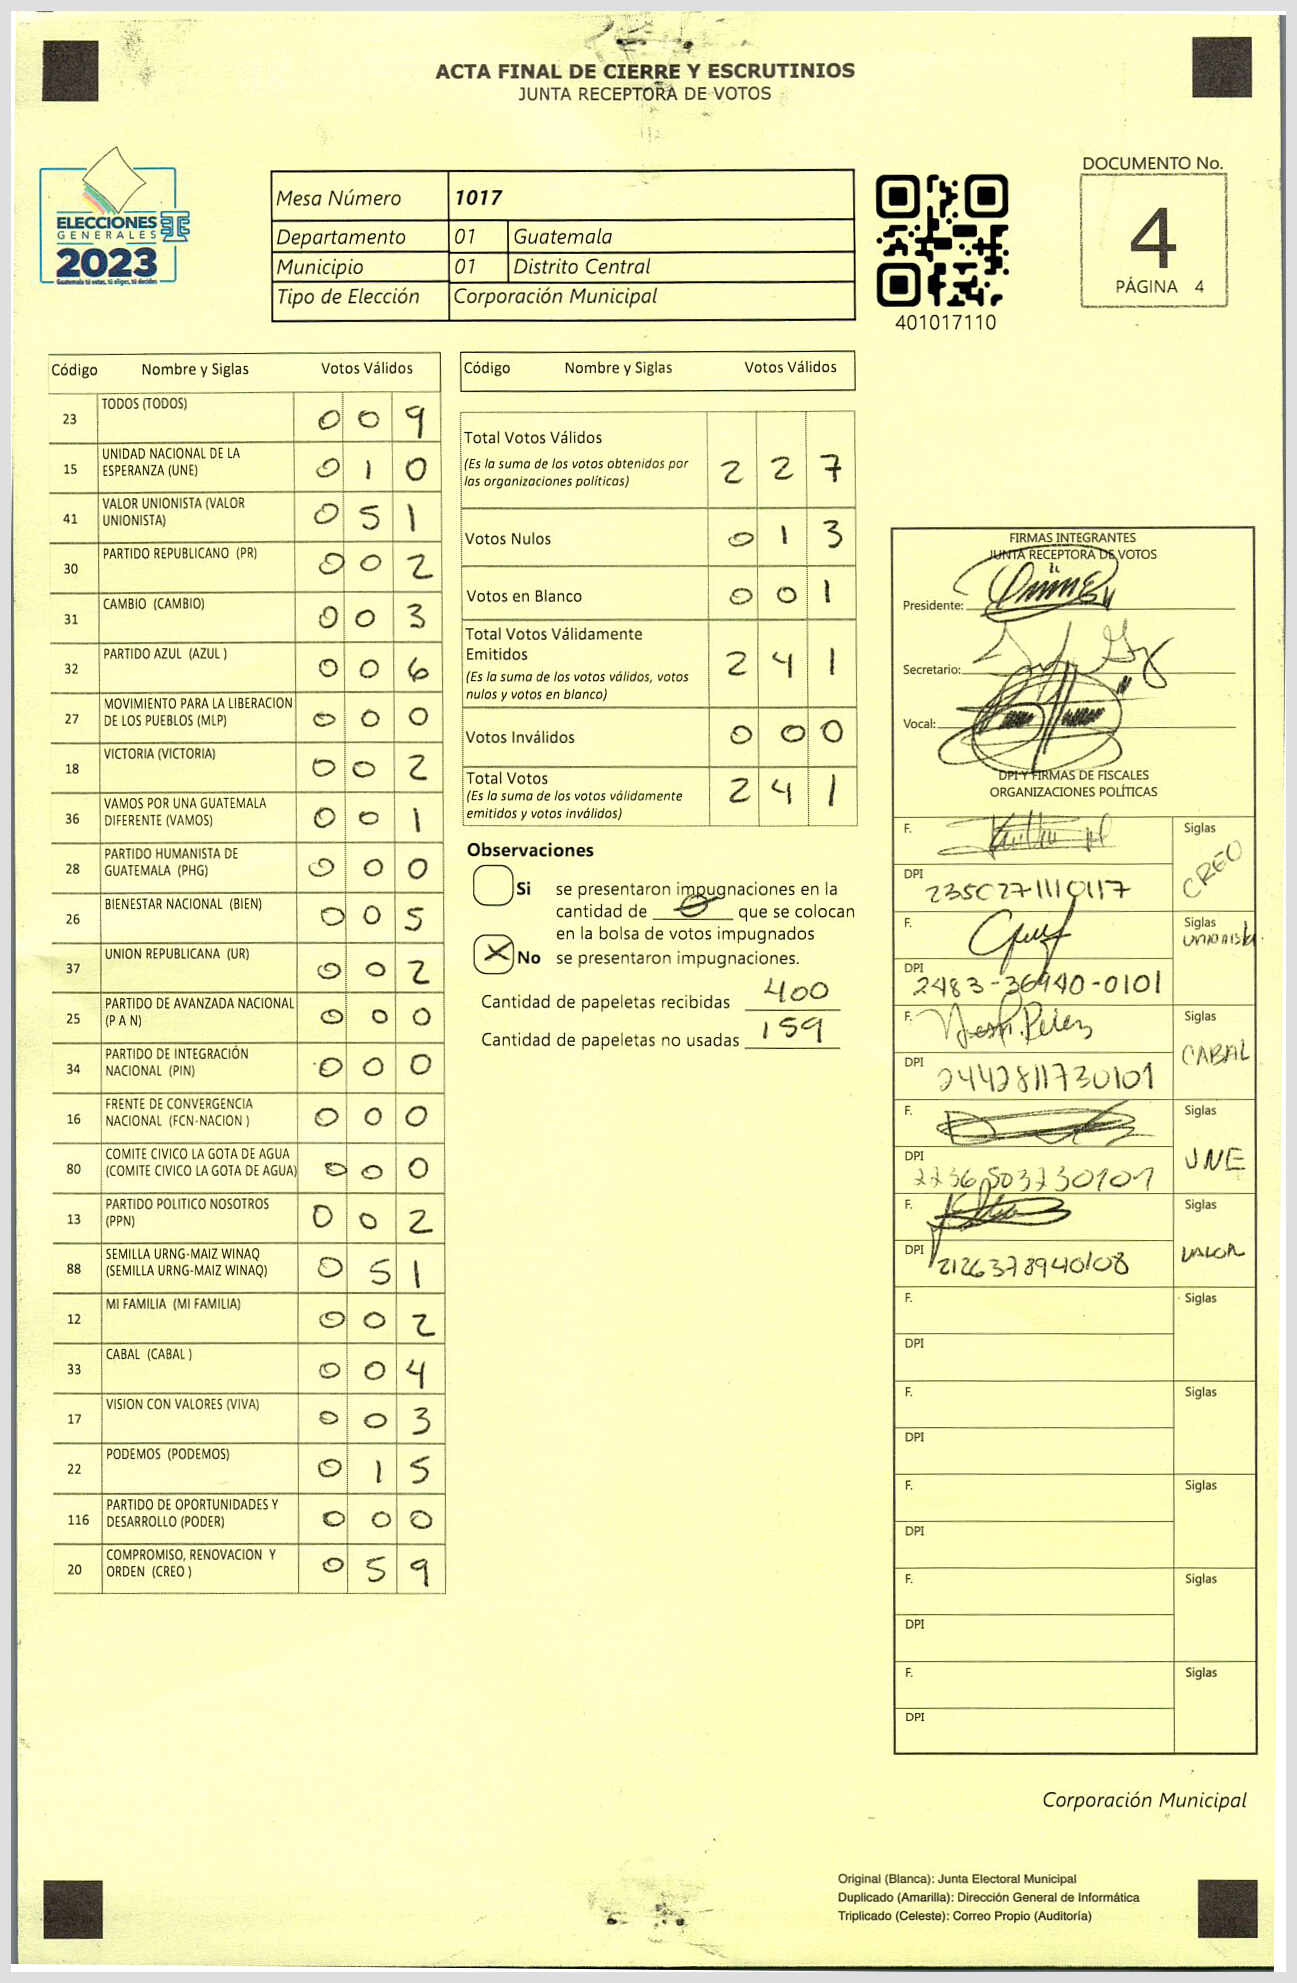 ACTA FINAL DE CIERRE Y ESCRUTINIOS
JUNTA RECEPTORA DE VOTOS
ELECCIONES
GENERALES
2023
Guatemala tú votas, tú eliges, tú decides
Mesa Número 1017
Departamento 01 Guatemala
Municipio 01 Distrito Central
Tipo de Elección Corporación Municipal
401017110
DOCUMENTO No.
4
PÁGINA 4
Código Nombre y Siglas Votos Válidos
23 TODOS (TODOS) 0 0 9
15 UNIDAD NACIONAL DE LA
ESPERANZA (UNE) 0 1 0
41 VALOR UNIONISTA (VALOR
UNIONISTA) 0 5 1
30 PARTIDO REPUBLICANO (PR) 0 0 2
31 CAMBIO (CAMBIO) 0 0 3
32 PARTIDO AZUL (AZUL ) 0 0 6
27 MOVIMIENTO PARA LA LIBERACION
DE LOS PUEBLOS (MLP) 0 0 0
18 VICTORIA (VICTORIA) 0 0 2
36 VAMOS POR UNA GUATEMALA
DIFERENTE (VAMOS) 0 0 1
28 PARTIDO HUMANISTA DE
GUATEMALA (PHG) 0 0 0
26 BIENESTAR NACIONAL (BIEN) 0 0 5
37 UNION REPUBLICANA (UR) 0 0 2
25 PARTIDO DE AVANZADA NACIONAL
(P A N) 0 0 0
34 PARTIDO DE INTEGRACIÓN
NACIONAL (PIN) 0 0 0
16 FRENTE DE CONVERGENCIA
NACIONAL (FCN-NACION ) 0 0 0
80 COMITE CIVICO LA GOTA DE AGUA
(COMITE CIVICO LA GOTA DE AGUA) 0 0 0
13 PARTIDO POLITICO NOSOTROS
(PPN) 0 0 2
88 SEMILLA URNG-MAIZ WINAQ
(SEMILLA URNG-MAIZ WINAQ) 0 5 1
12 MI FAMILIA (MI FAMILIA) 0 0 2
33 CABAL (CABAL ) 0 0 4
17 VISION CON VALORES (VIVA) 0 0 3
22 PODEMOS (PODEMOS) 0 1 5
116 PARTIDO DE OPORTUNIDADES Y
DESARROLLO (PODER) 0 0 0
20 COMPROMISO, RENOVACION Y
ORDEN (CREO ) 0 5 9
Código Nombre y Siglas Votos Válidos
Total Votos Válidos
(Es la suma de los votos obtenidos por
las organizaciones políticas) 2 2 7
Votos Nulos 0 1 3
Votos en Blanco 0 0 1
Total Votos Válidamente
Emitidos 2 4 1
(Es la suma de los votos válidos, votos
nulos y votos en blanco)
Votos Inválidos 0 0 0
Total Votos 2 4 1
(Es la suma de los votos válidamente
emitidos y votos inválidos)
Observaciones
Si se presentaron impugnaciones en la
cantidad de 0 que se colocan
en la bolsa de votos impugnados
X No se presentaron impugnaciones.
Cantidad de papeletas recibidas 400
Cantidad de papeletas no usadas 159
FIRMAS INTEGRANTES
JUNTA RECEPTORA DE VOTOS
Presidente:
Secretario:
Vocal:
DPI Y FIRMAS DE FISCALES
ORGANIZACIONES POLÍTICAS
F. Siglas CREO
DPI 2350271110117
F. Siglas Unionista.
DPI 2483-36940-0101
F. Siglas CABAL
DPI 2442811730101
F. Siglas UNE
DPI 2236503230101
F. Siglas VALOR
DPI 2126378940108
F. Siglas
DPI
F. Siglas
DPI
F. Siglas
DPI
F. Siglas
DPI
F. Siglas
DPI
Corporación Municipal
Original (Blanca): Junta Electoral Municipal
Duplicado (Amarilla): Dirección General de Informática
Triplicado (Celeste): Correo Propio (Auditoría)